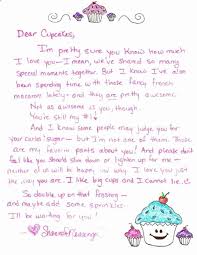 Dear Cupcakes,
I'm pretty sure you know how much
I love you—I mean, we've shared so many
special moments together. But I know I've also
been spending time with those fancy french
macarons lately—and they are pretty awesome.
Not as awesome as you, though.
You're still my #1!
And I know some people may judge you for
your carbs/sugar—but I'm not one of those. Those
are my favorite parts about you! And please don't
feel like you should slim down or lighten up for me—
neither of us will be happy that way. I love you just
the way you are. I like big cups and I cannot lie.
So double up on that frosting—
and maybe add some sprinkles.
I'll be waiting for you!